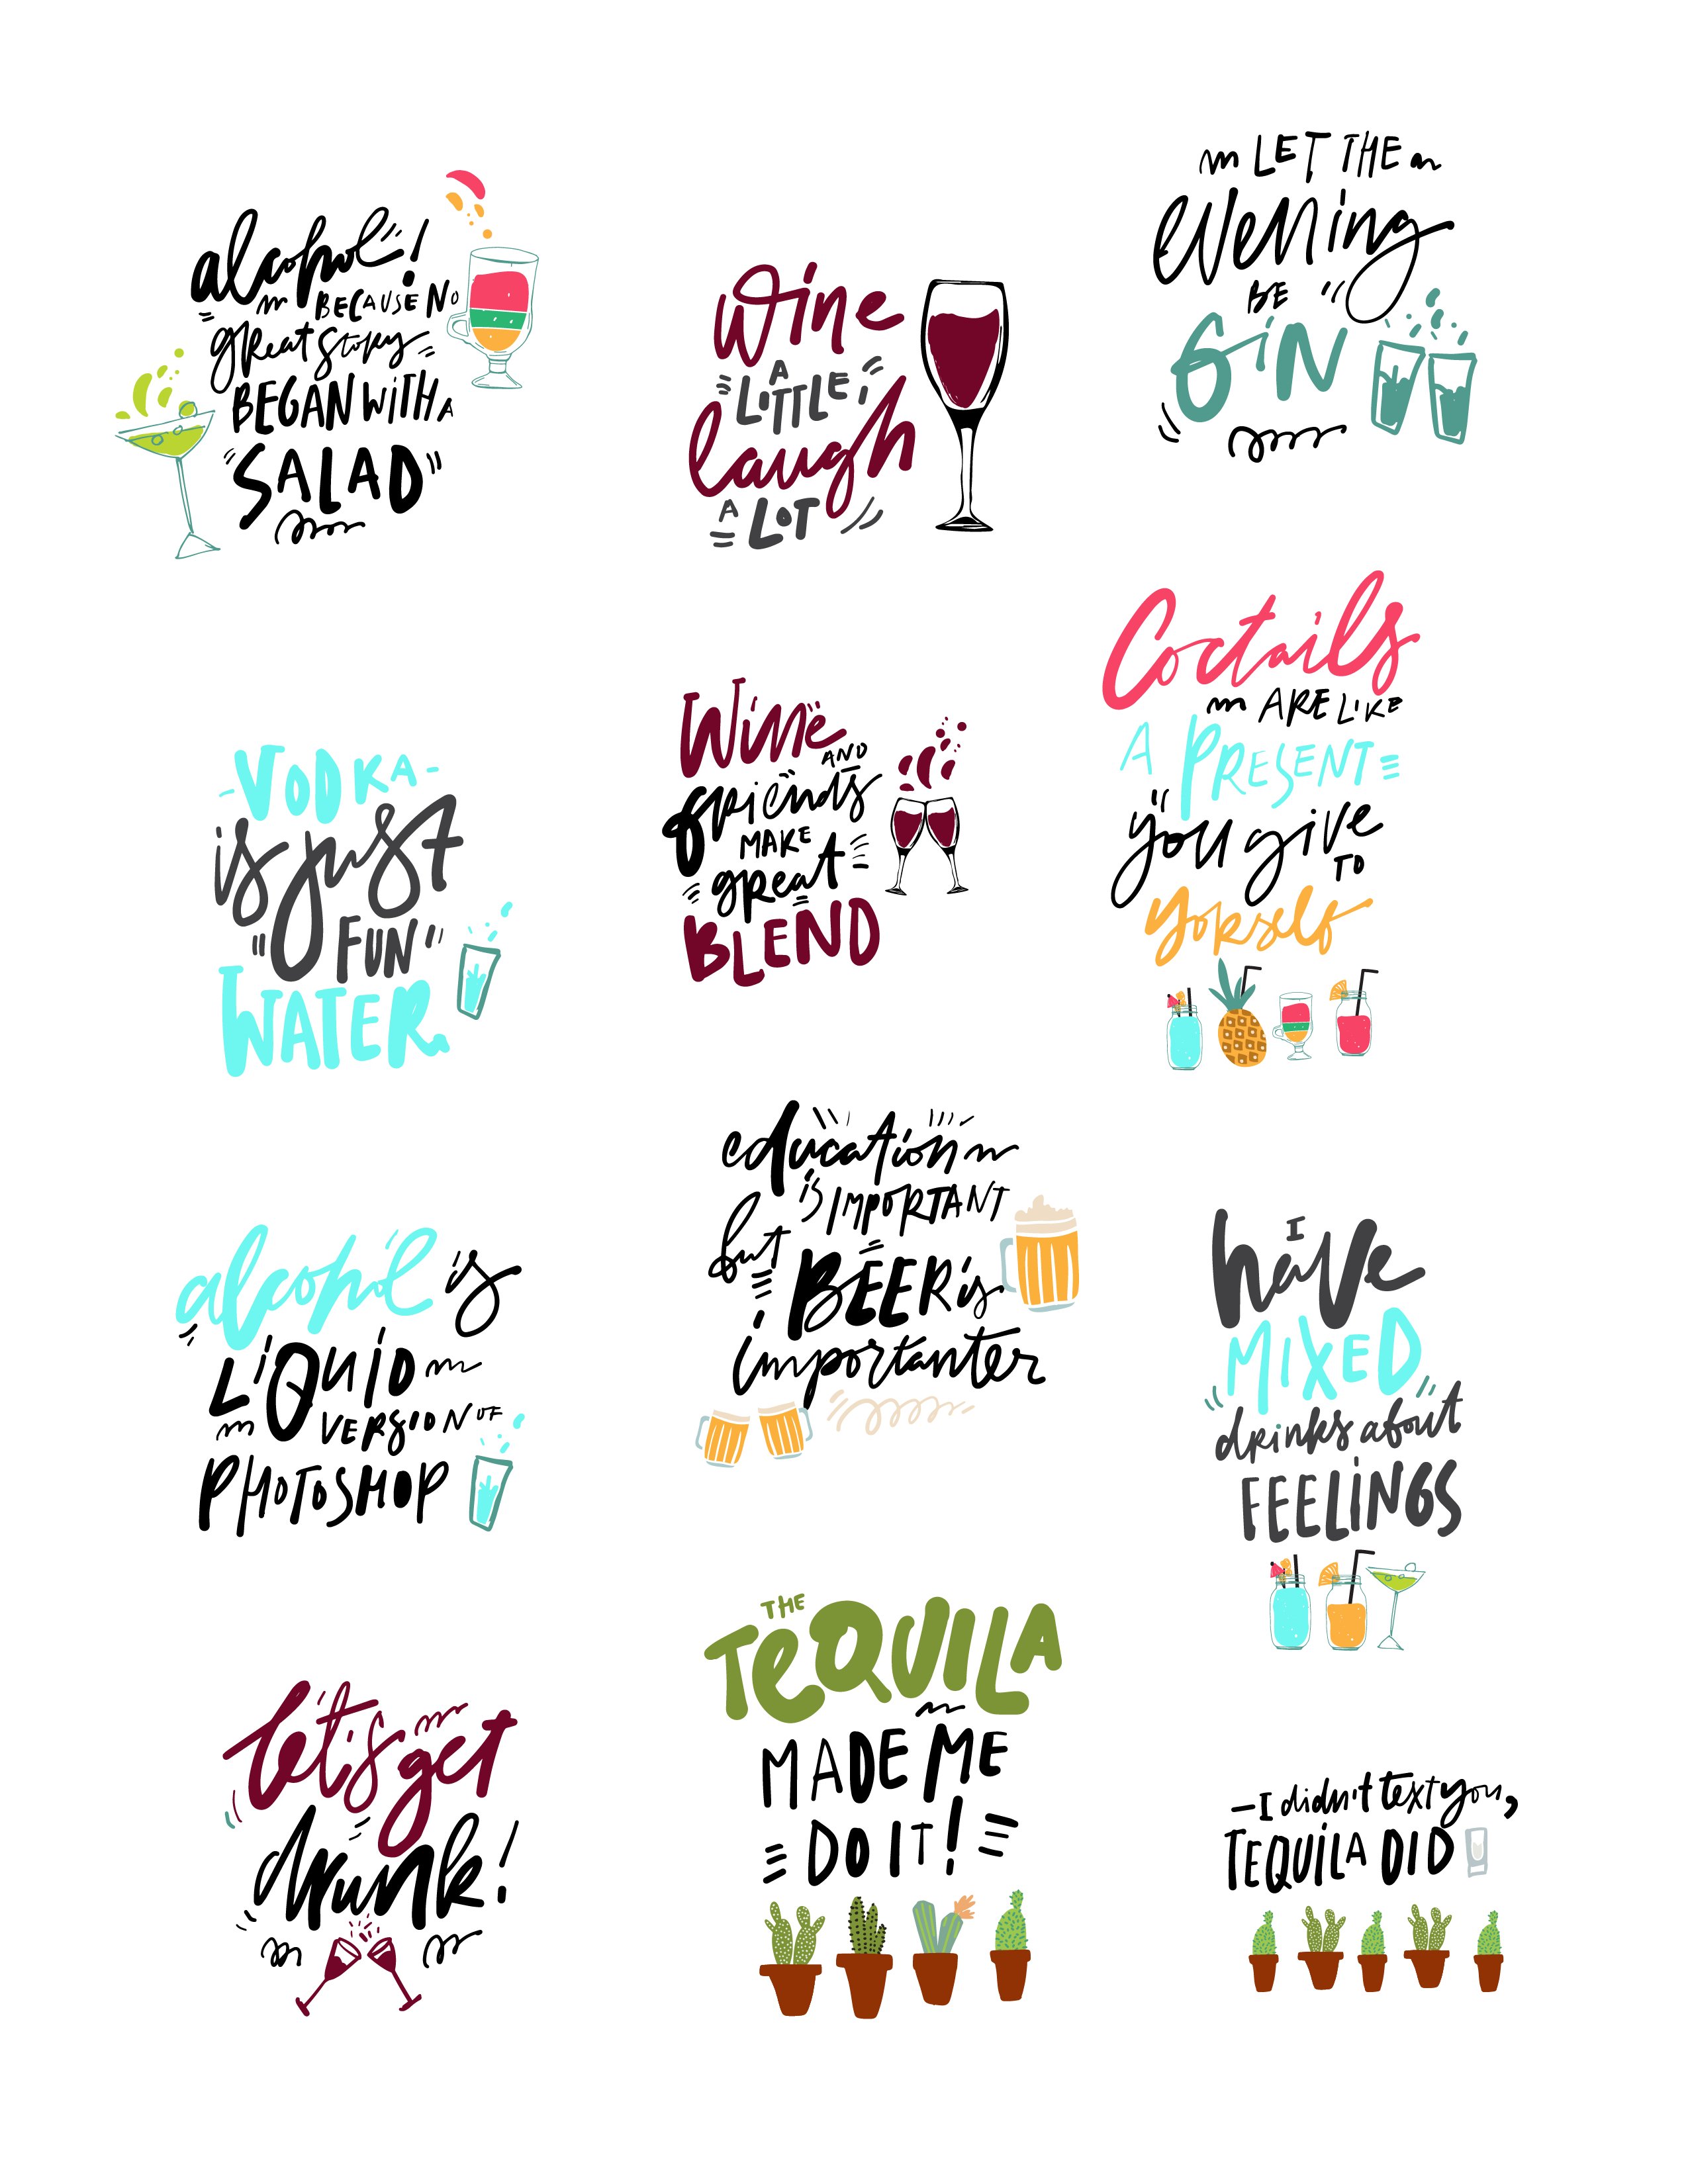 alcohol!
BECAUSE NO
great story
BEGAN WITH A
SALAD
wine
A
LITTLE,
laugh
A LOT
LET THE
evening
BE
GIN
VODKA-
is just
FUN
WATER.
Wine
AND
friends
MAKE
great
BLEND
Coctails
ARE LIKE
A PRESENT
you give
TO
yorself
alcohol is
LIQUID
VERSION OF
PHOTOSHOP
education
is IMPORTANT
but
BEER is
importanter
I
have
MIXED
drinks about
FEELINGS
let's get
drunk!
THE
TEQUILA
MADE ME
DO IT!
—I didn't text you,
TEQUILA DID